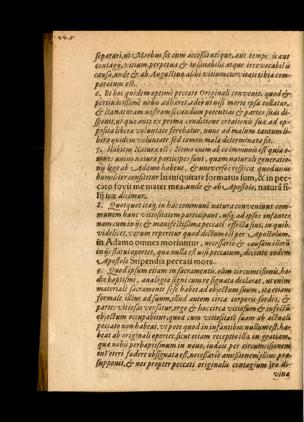 separari, ut Morbus sit cum accessit utique, aut tempe. is aut
contagij, vitium perpetua & insanabilis atque irrevocabilis
causa, unde & ab Augustino alibi vitium curvitati tibiæ com-
paratum est.
6. Et hoc quidem optime peccato Originali convenit, quod &
pertinacissime nobis adhæret, adeo ut nisi morte ipsa tollatur,
& ita naturam nostram secundum potentias & partes suas dis-
ponit, ut quæ ante ex prima conditione creationis suæ ad op-
posita libera voluntate ferebatur, nunc ad malum tantum li-
bera quidem voluntate sed tamen male determinata sit.
7. Habitus Natura est: Nemo enim ab eo immunis est quia o-
mnes unius naturæ participes sunt, quam naturali generatio-
nis lege ab Adamo habent, & universæ est
humiliter consitetur In iniquitate formatus sum, & in pec-
cato fovit me mater mea. unde & ab Apostolo, natura fi-
lij iræ dicimur.
8. Quotquot itaq; in hac communi natura conveniunt com-
munem hanc vitiositatem participant, usq; ad ipsos infantes
nam cum in ijs & manifestissima peccati effecta sint, in quib.
videlicet, verum reperitur quod dictum est per Apostolum,
in Adamo omnes moriuntur, necessario & causam illorum
in ijs statui oportet, quæ nulla est nisi peccatum, dicente eodem
Apostolo Stipendia peccati mors.
9. Quod ipsum etiam in sacramentis, olim circumcisionis, ho-
die baptismi, analogia signi cum re signata declarat, ut enim
materiale sacramenti sese habet ad objectum suum, ita etiam
formale illius ad suum, illud autem circa corporis sordes, &
partes vitiosas versatur, ergo & hoc circa vitiosum & infectum
objectum occupabitur, quod cum vitiositatē suam ab actuali
peccato non habeat, ut pote quod in infantibus nullum est, ha-
beat ab originali oportet, sicut etiam receptio illa in gratiam,
quæ nobis per baptismum in novo, indais per circumcisionem
in Veteri fœdere obsignata est, necessario amissionem illius præ-
supponit, & nos propter peccati originalis contagium iræ di-
vinæ